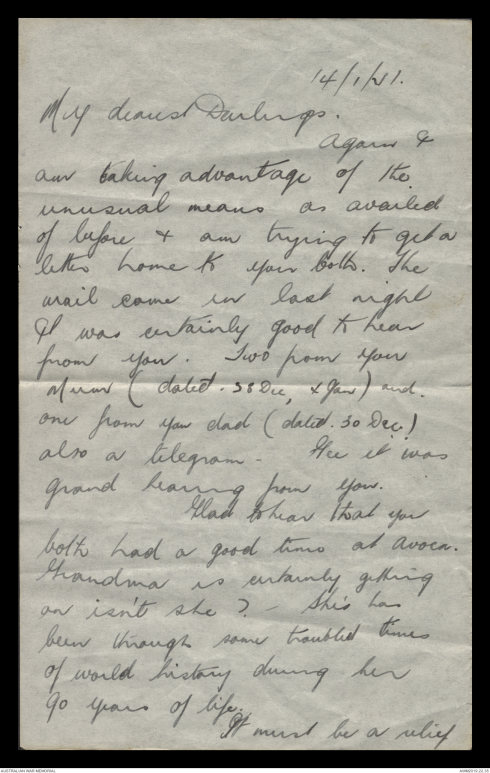 14/1/41.
My dearest Darlings.
Again I
am taking advantage of the
unusual means as availed
of before & am trying to get a
letter home to you both. The
mail came in last night
& it was certainly good to hear
from you. Two from you
Mum (dated. 28 Dec, & Jan) and.
one from you dad (dated. 30 Dec.)
also a telegram - Gee it was
grand hearing from you.
Glad to hear that you
both had a good time at Avoca.
Grandma is certainly getting
on isn't she? - She's has
been through some troubled times
of world history during her
90 years of life.
It must be a relief
AUSTRALIAN WAR MEMORIAL